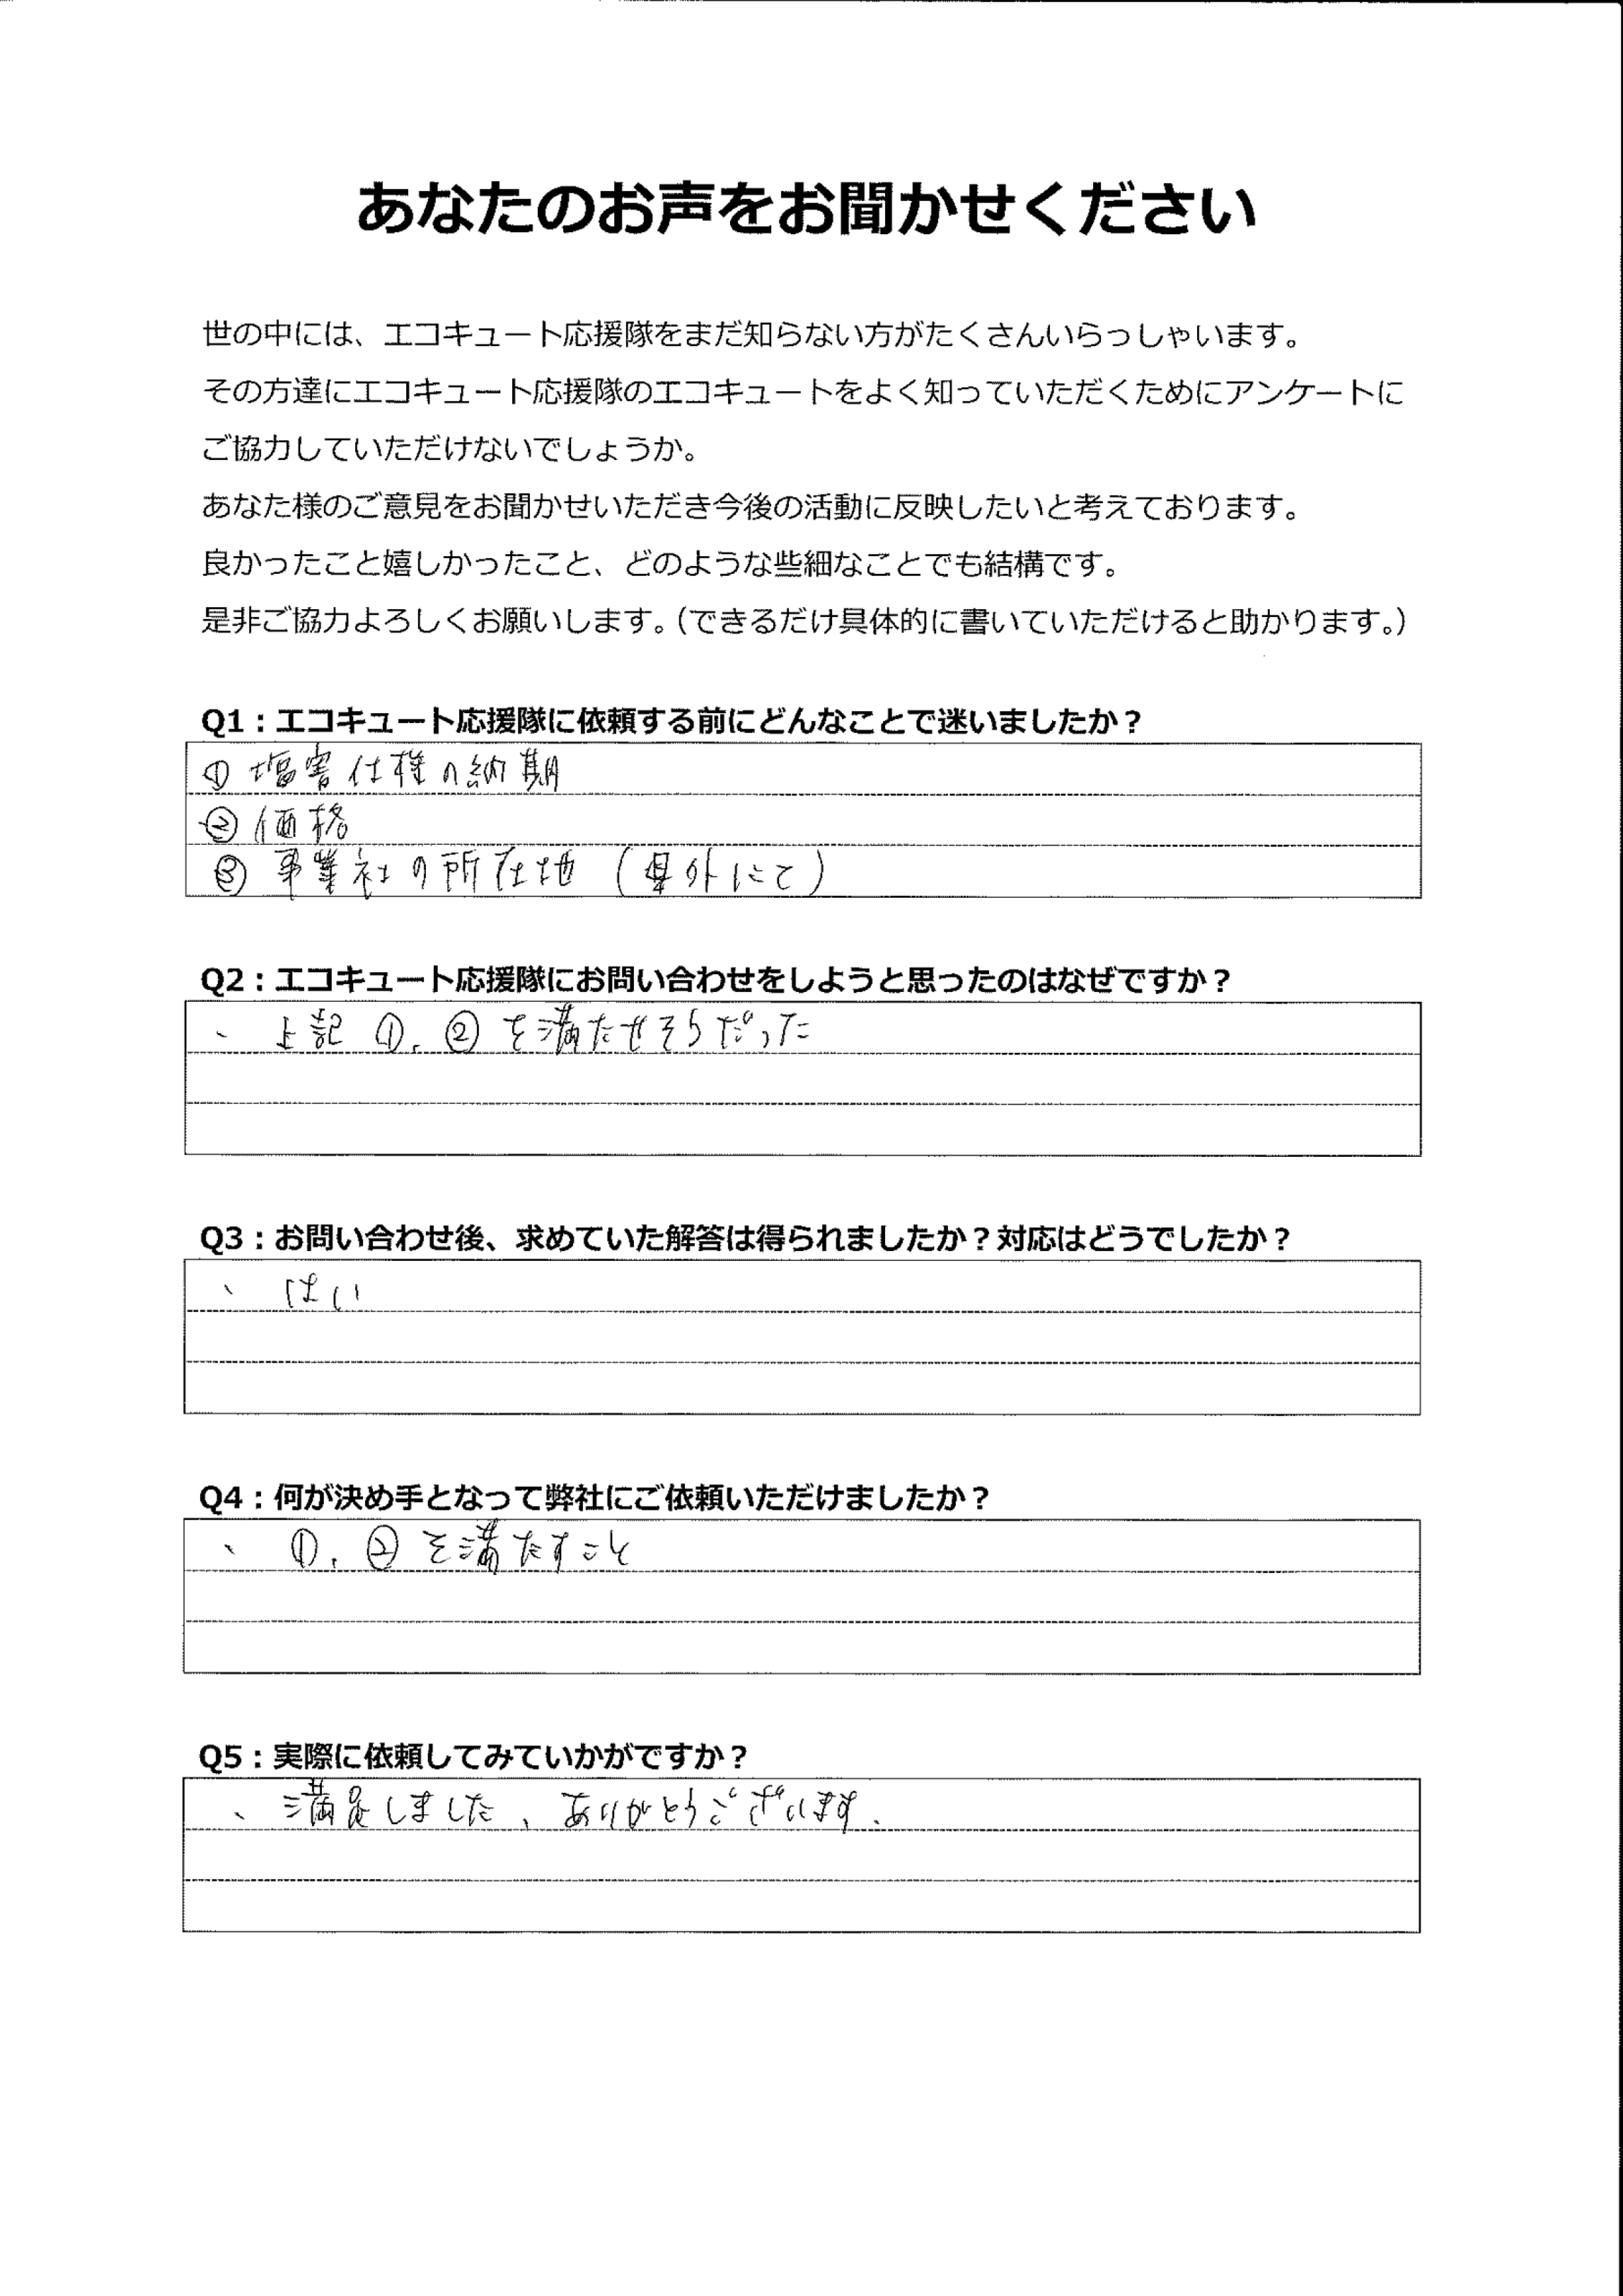 あなたのお声をお聞かせください
世の中には、エコキュート応援隊をまだ知らない方がたくさんいらっしゃいます。
その方達にエコキュート応援隊のエコキュートをよく知っていただくためにアンケートに
ご協力していただけないでしょうか。
あなた様のご意見をお聞かせいただき今後の活動に反映したいと考えております。
良かったこと嬉しかったこと、どのような些細なことでも結構です。
是非ご協力よろしくお願いします。（できるだけ具体的に書いていただけると助かります。）
Q1：エコキュート応援隊に依頼する前にどんなことで迷いましたか？
① 塩害仕様の納期
② 価格
③ 事業社の所在地（県外にて）
Q2：エコキュート応援隊にお問い合わせをしようと思ったのはなぜですか？
、上記 ①．② を満たせそうだった
Q3：お問い合わせ後、求めていた解答は得られましたか？対応はどうでしたか？
、はい
Q4：何が決め手となって弊社にご依頼いただけましたか？
、①．② を満たすこと
Q5：実際に依頼してみていかがですか？
、満足しました、ありがとうございます．